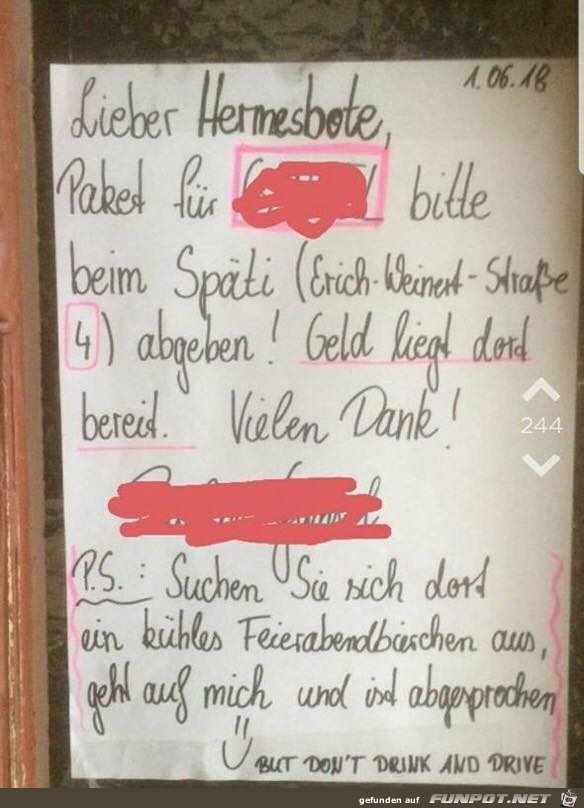 1.06.18
Lieber Hermesbote,
Paket für bitte
beim Späti (Erich-Weinert-Straße
4) abgeben! Geld liegt dort
bereit. Vielen Dank!
P.S.: Suchen Sie sich dort
ein kühles Feierabendbierchen aus,
geht auf mich und ist abgesprochen
BUT DON'T DRINK AND DRIVE
244
gefunden auf FUNPOT.NET